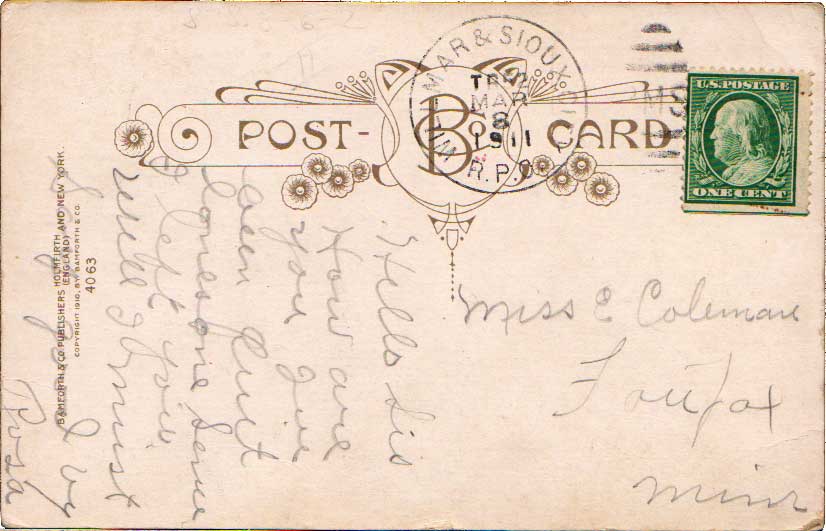 POST-CARD
B&Co
WILLMAR & SIOUX
MAR
8
1911
R.P.O.
U.S. POSTAGE
ONE CENT
BAMFORTH & CO. PUBLISHERS HOLMFIRTH AND NEW YORK.
(ENGLAND)
COPYRIGHT 1910, BY BAMFORTH & CO.
4063
Hello Sis
How are
you Ive
ben quit
lonesome sence
I left you
well I must
Say good by
Rosa
Miss E Coleman
Fairfax
Minn